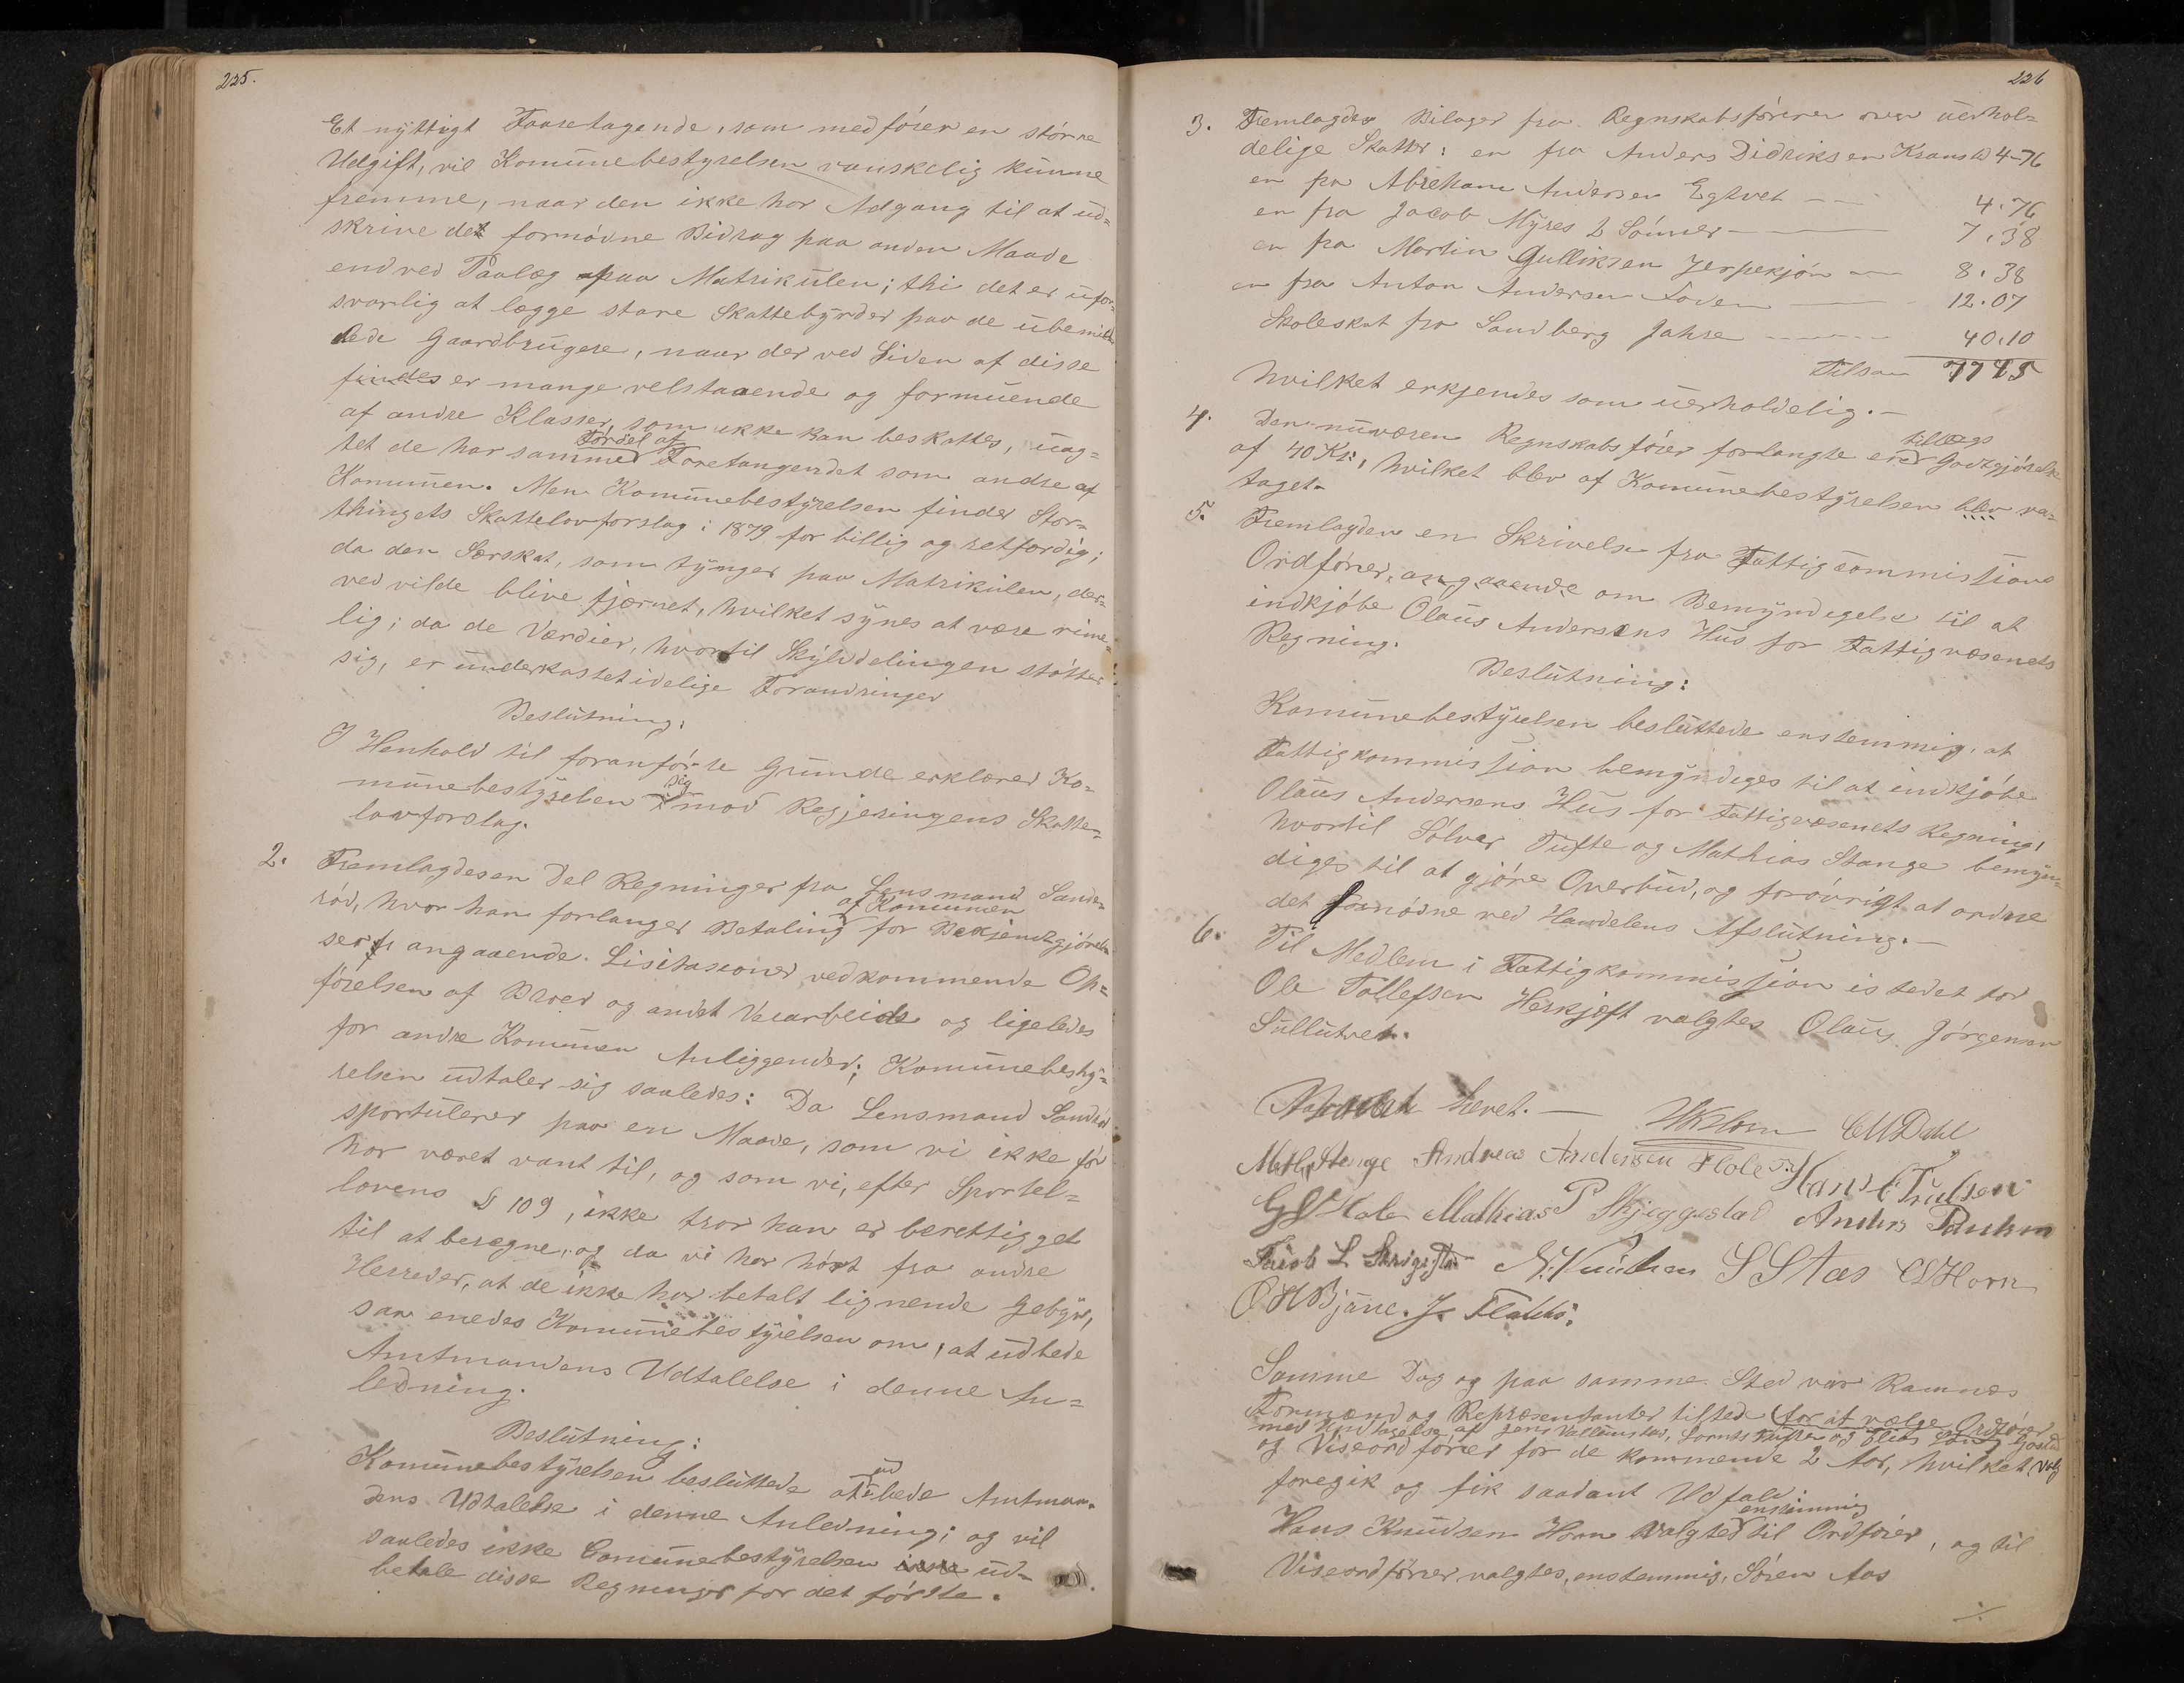 225.
Et nyttigt Foaretagende, som medfører en større
Udgift, vil Komunebestyrelsen vanskelig kunne
fremme, naar den ikke har Adgang til at ud=
skrive det fornødne Bidrag paa anden Maade
end ved Paalæg paa Matrikulen; thi det er ufor=
svarlig at lægge store Skattebyrder paa de ubemid=
lede Gaardbrugere, naar der ved Siden af disse
findes er mange velstaaende og formuende
af andre Klasser, som ikke kan beskattes, uag=
tet de har samme Fordel af Foretangendet som andre af
Komunen. Men Komunebestyrelsen finder Stor=
thingets Skattelovforslag i 1879 for billig og retfærdig;
da den Særskat, som tynger paa Matrikulen, der=
ved vilde blive fjærnet, hvilket synes at være rime=
lig; da de Værdier, hvortil Skylddelingen støtter
sig, er underkastet idelige Forandringer
Beslutning.
I Henhold til foranførte Grunde erklærer Ko=
munebestyrelsen sig mod Regjeringens Skatte=
lovforslag.
2. Fremlagdes en Del Regninger fra Lensmand Sande=
rød, hvor han forlanger Betaling af Komunen for Bekjendtgjørel=
ser angaaende Lisitasioner vedkommende Op=
førelsen af Broer og andet Veiarbeide og ligeledes
for andre Komunen Anliggender; Komunebesty=
relsen udtaler sig saaledes: Da Lensmand Sanderød
sportulerer paa en Maade, som vi ikke før
har været vant til, og som vi, efter Sportel=
lovens § 109, ikke tror han er berettigget
til at beregne, og da vi har hørt fra andre
Herreder, at de ikke har betalt lignende Gebyr,
saa enedes Komunebestyrelsen om, at udbede
Amtmandens Udtalelse i denne An=
ledning.
Beslutning:
Komunebestyrelsen besluttede at udbede Amtman=
dens Udtalelse i denne Anledning; og vil
saaledes ikke Comunebestyrelsen ikke ud=
betale disse Regninger for det første.
226
3. Fremlagdes Bilager fra Regnskabsføreren over uerhol=
delige Skatter: en fra Anders Didriksen Krans 4-76
en fra Abreham Andersen Egtvet 4.76
en fra Jacob Myres 2 Sønner 7.38
en fra Martin Gulliksen Jerpekjøn 8.38
en fra Anton Andersen 12.07
Skoleskat fra Sandberg Jahre 40.10
Tilsam 77 45
hvilket erkjendes som uerholdelig.—
4. Den nuværen Regnskabsfører forlangte en tillægs Godtgjørelse
af 40 Kr:, hvilket blev af Komunebestyrelsen blev ved=
taget.
5. Fremlagdes en Skrivelse fra Fattigcommissions
Ordfører, angaaende om Bemyndigelse til at
indkjøbe Olaus Andersens Hus for Fattigvæsenets
Regning.
Beslutning:
Komunebestyrelsen besluttede enstemmig, at
Fattigkommission bemyndiges til at indkjøbe
Olaus Andersens Hus for Fattigvæsenets Regning,
hvortil Sølver Tufte og Mathias Stange bemyn=
diges til at gjøre Overbud, og forøvrigt at ordne
det fornødne ved Handelens Afslutning.—
6. Til Medlem i Fattigkommission istedet for
Ole Tollefsen Herkjøft valgtes Olaus Jørgensen
Sullutvet.
hævet.— HKHorn CMDahl
Math. Stange Andreas Andersen Hole Hans C Trulsen
Mathias P Skjeggestad Anders Paulsen
Jacob L N. Knudsen S S Aas Horn
O H Bjune. J.
Samme Dag og paa samme Sted var Ramnæs
Formænd og Repræsentanter tilstede (for at vælge Ordfører
med Undtagelse af Jens Vallumrød, Sornts Tufte og Elias
og Viseordfører for de kommende 2 Aar, hvilket Valg
foregik og fik saadant Udfald:
Hans Knudsen Horn valgtes enstemmig til Ordfører, og til
Viseordfører valgtes, enstemmig, Søren Aas